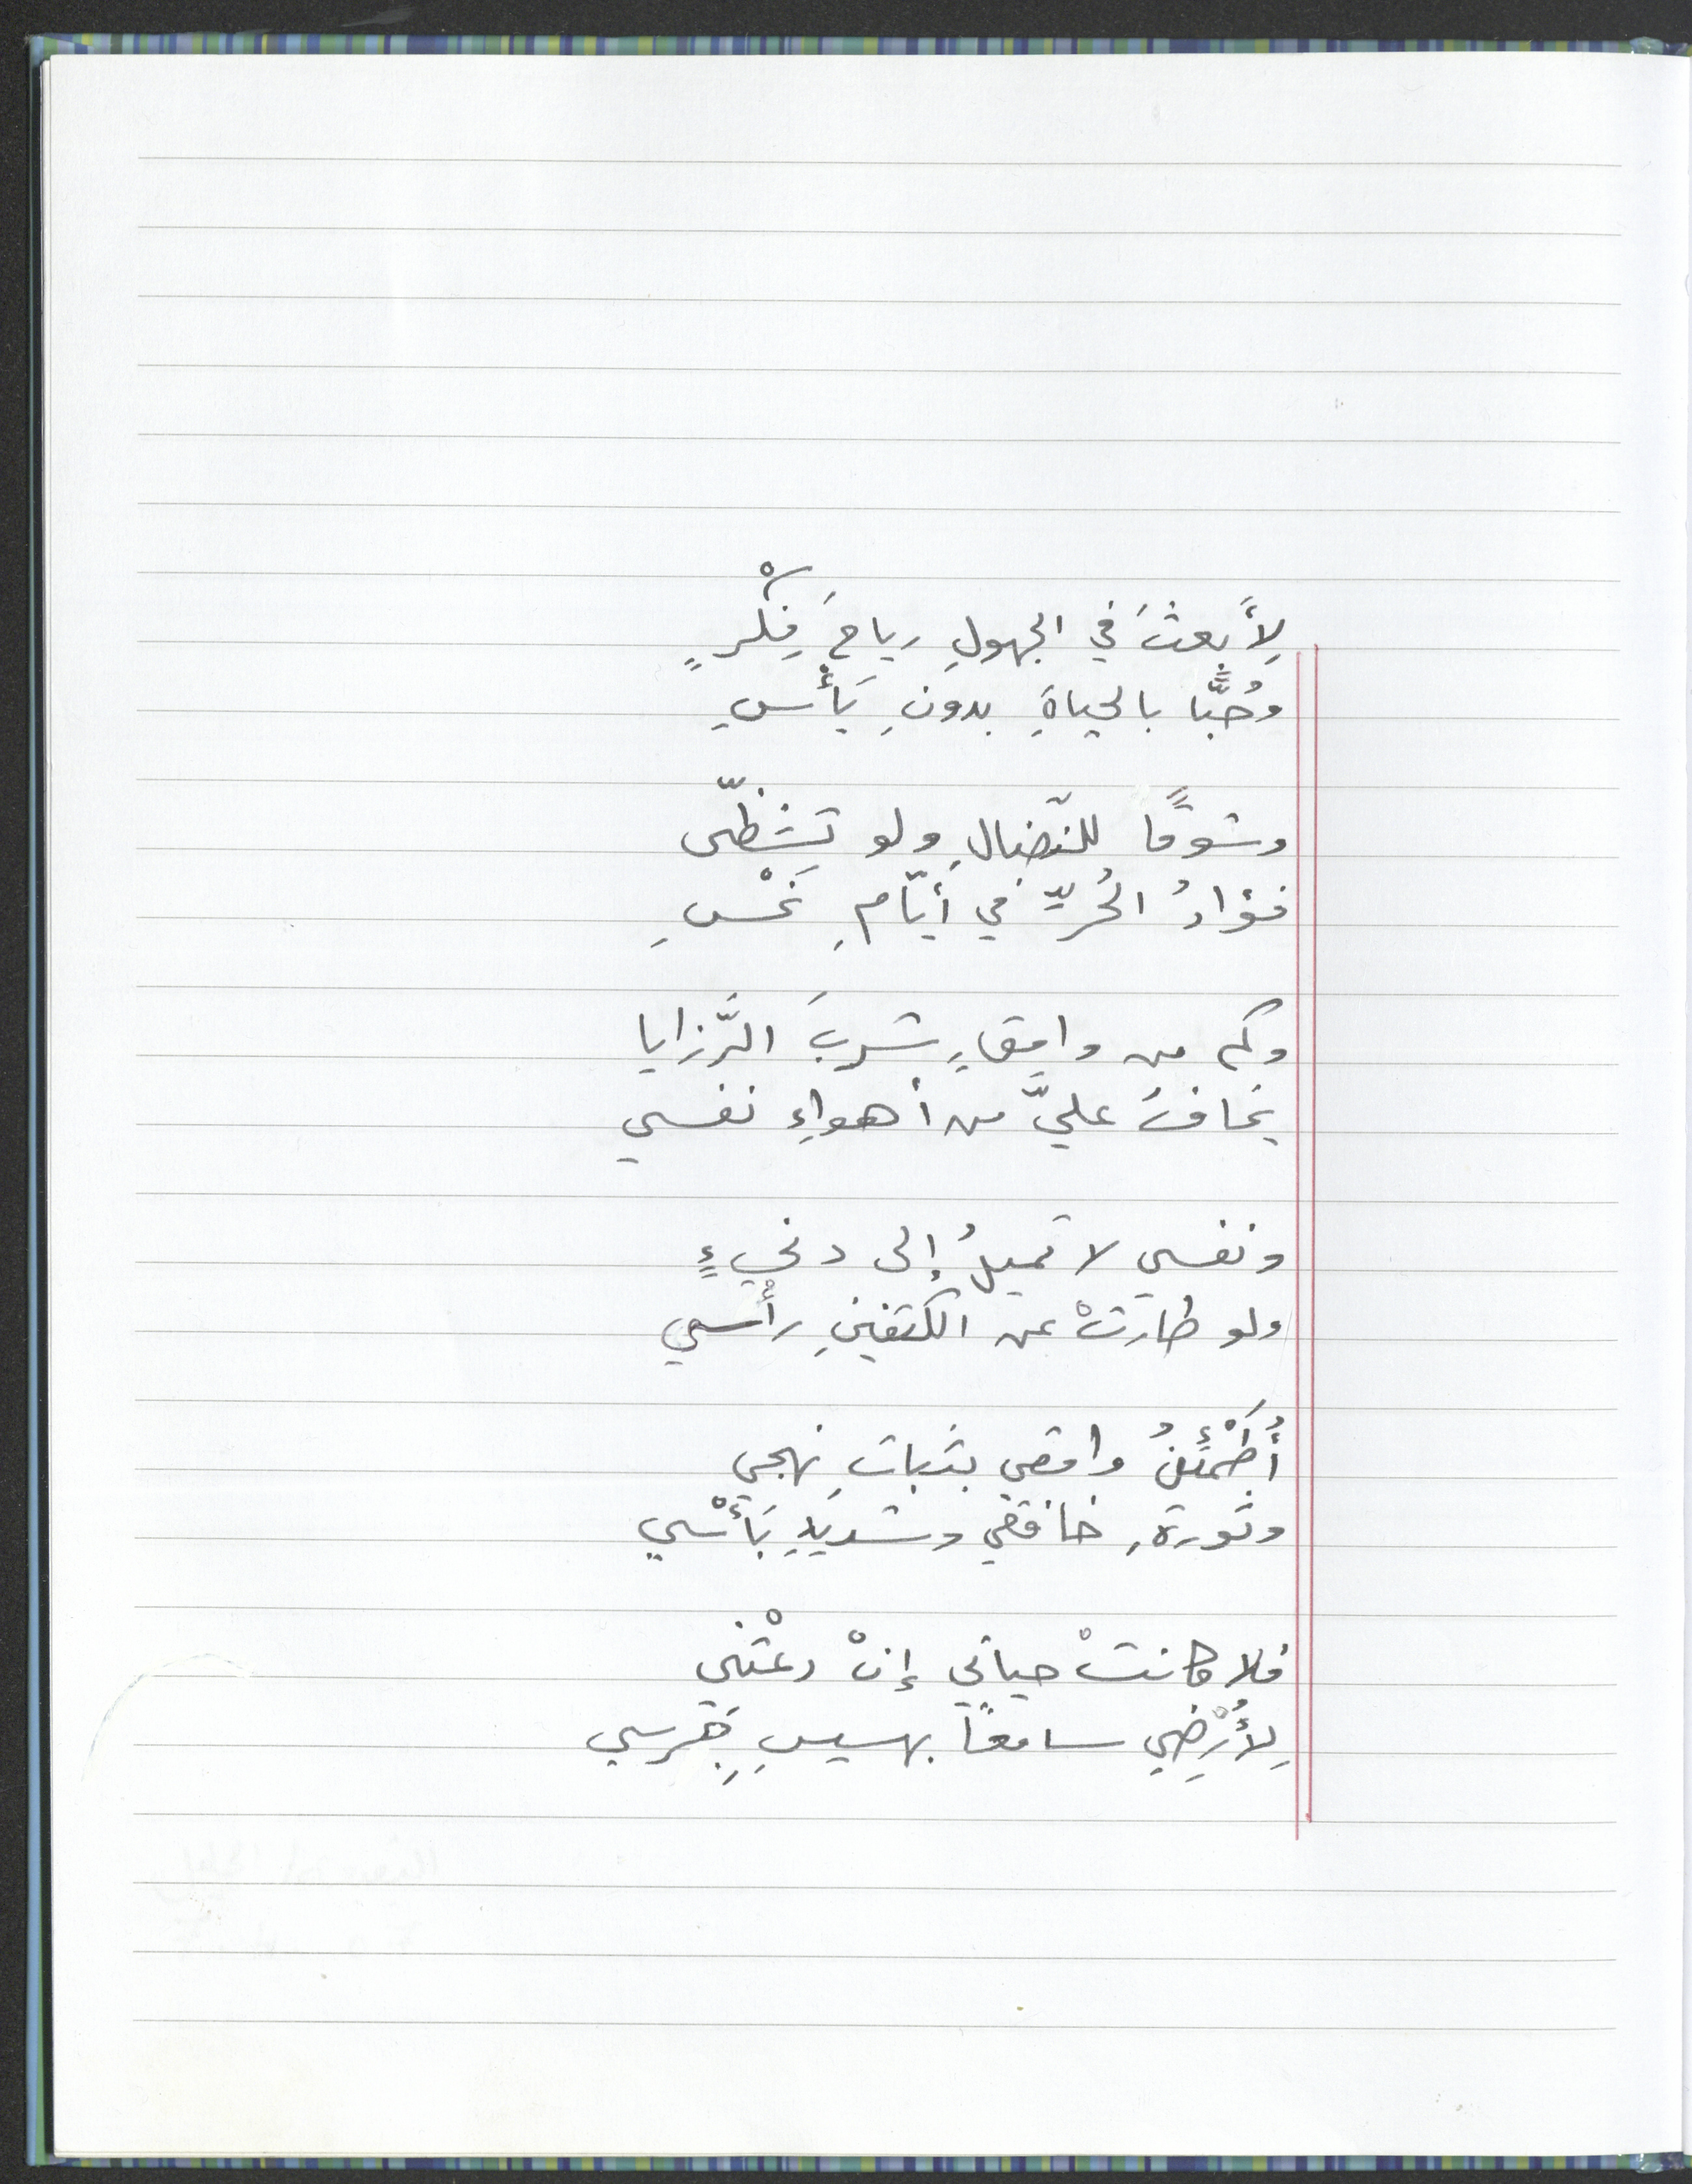 لِأَبعثَ في الجهولِ رياحَ فِكْرٍ
وحُبًّا بالحياةِ بدونِ يَأْسِ
وشوقًا للنّضالِ ولو تشظّى
فؤادُ الحُرِّ في أيّامِ نَحْسِ
وكم من وامقٍ شربَ الرَّزايا
يخافُ عليَّ من أهواءِ نفسي
ونفسي لا تميلُ إلى دنيءٍ
ولو طارتْ عن الكتفينِ رأْسي
أُطَمْئِنُ وامقي بثباتِ نهجي
وثورةِ خافقي وشديدِ بَأْسي
فلا كانتْ حياتي إنْ دعَتْني
لِأُرْضِي سامعًا بهسيسِ جَرسي